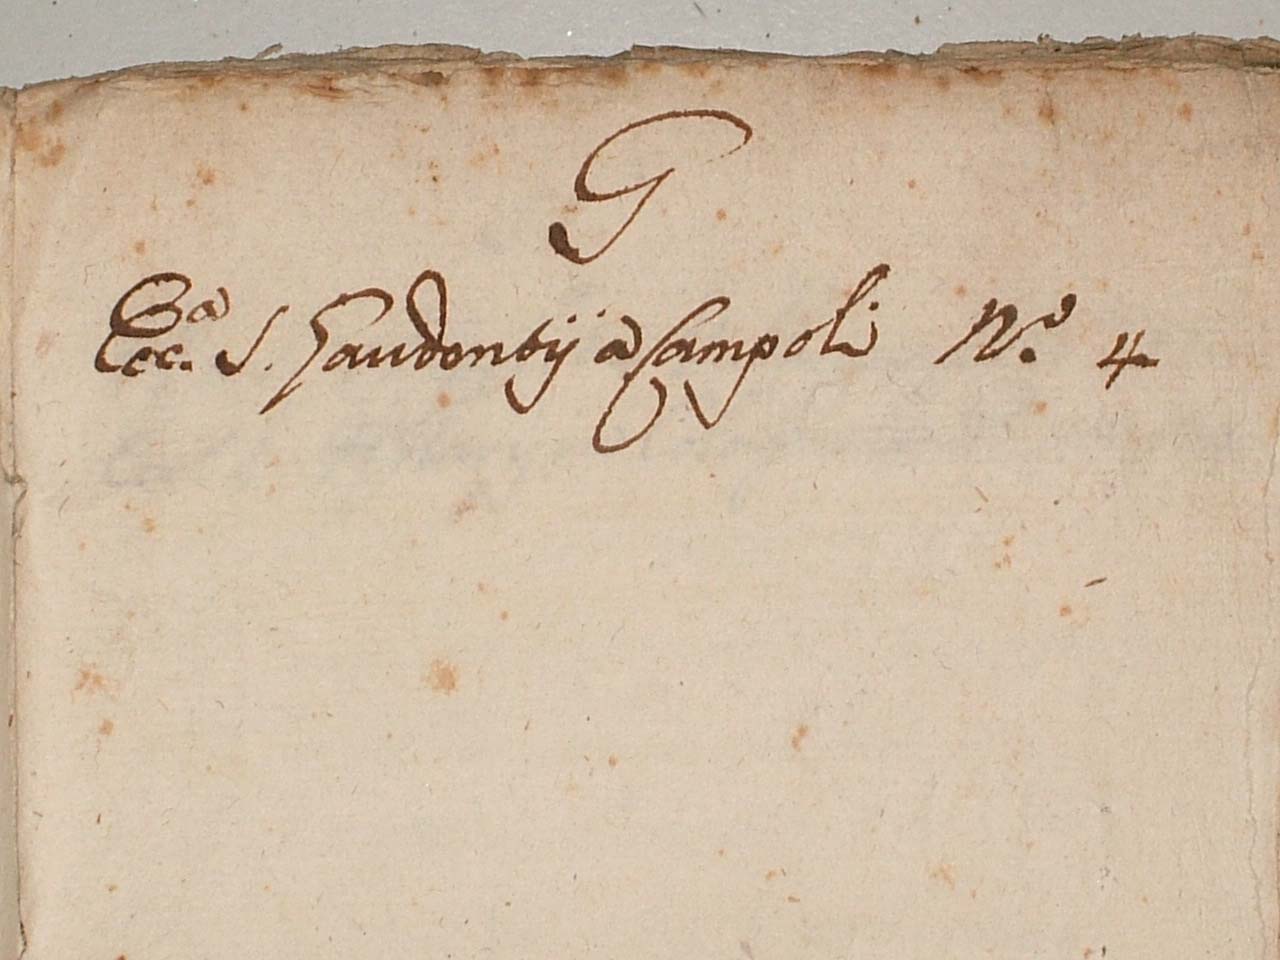 G
Ecc.a S. Gaudentij a Campoli N.o 4